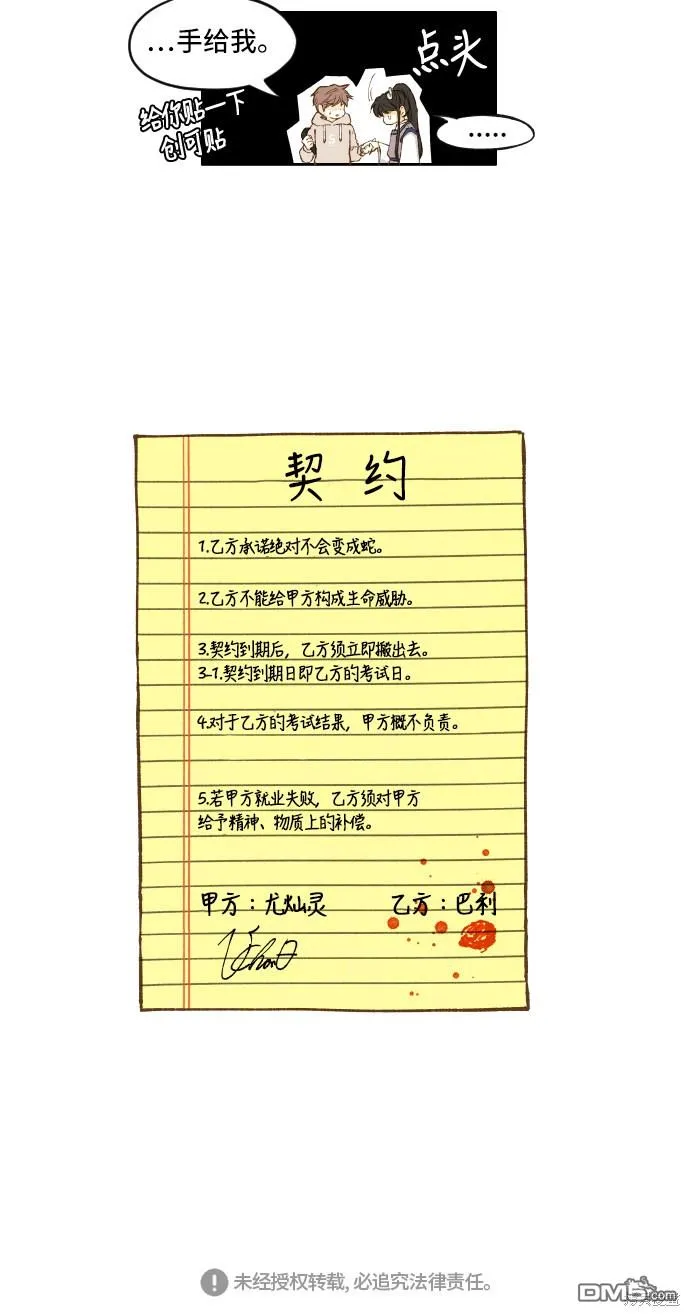 ...手给我。
点头
给你贴一下
创可贴
.....
契约
1.乙方承诺绝对不会变成蛇。
2.乙方不能给甲方构成生命威胁。
3.契约到期后，乙方须立即搬出去。
3-1.契约到期日即乙方的考试日。
4.对于乙方的考试结果，甲方概不负责。
5.若甲方就业失败，乙方须对甲方
给予精神、物质上的补偿。
甲方：尤灿灵 乙方：巴利
未经授权转载, 必追究法律责任。